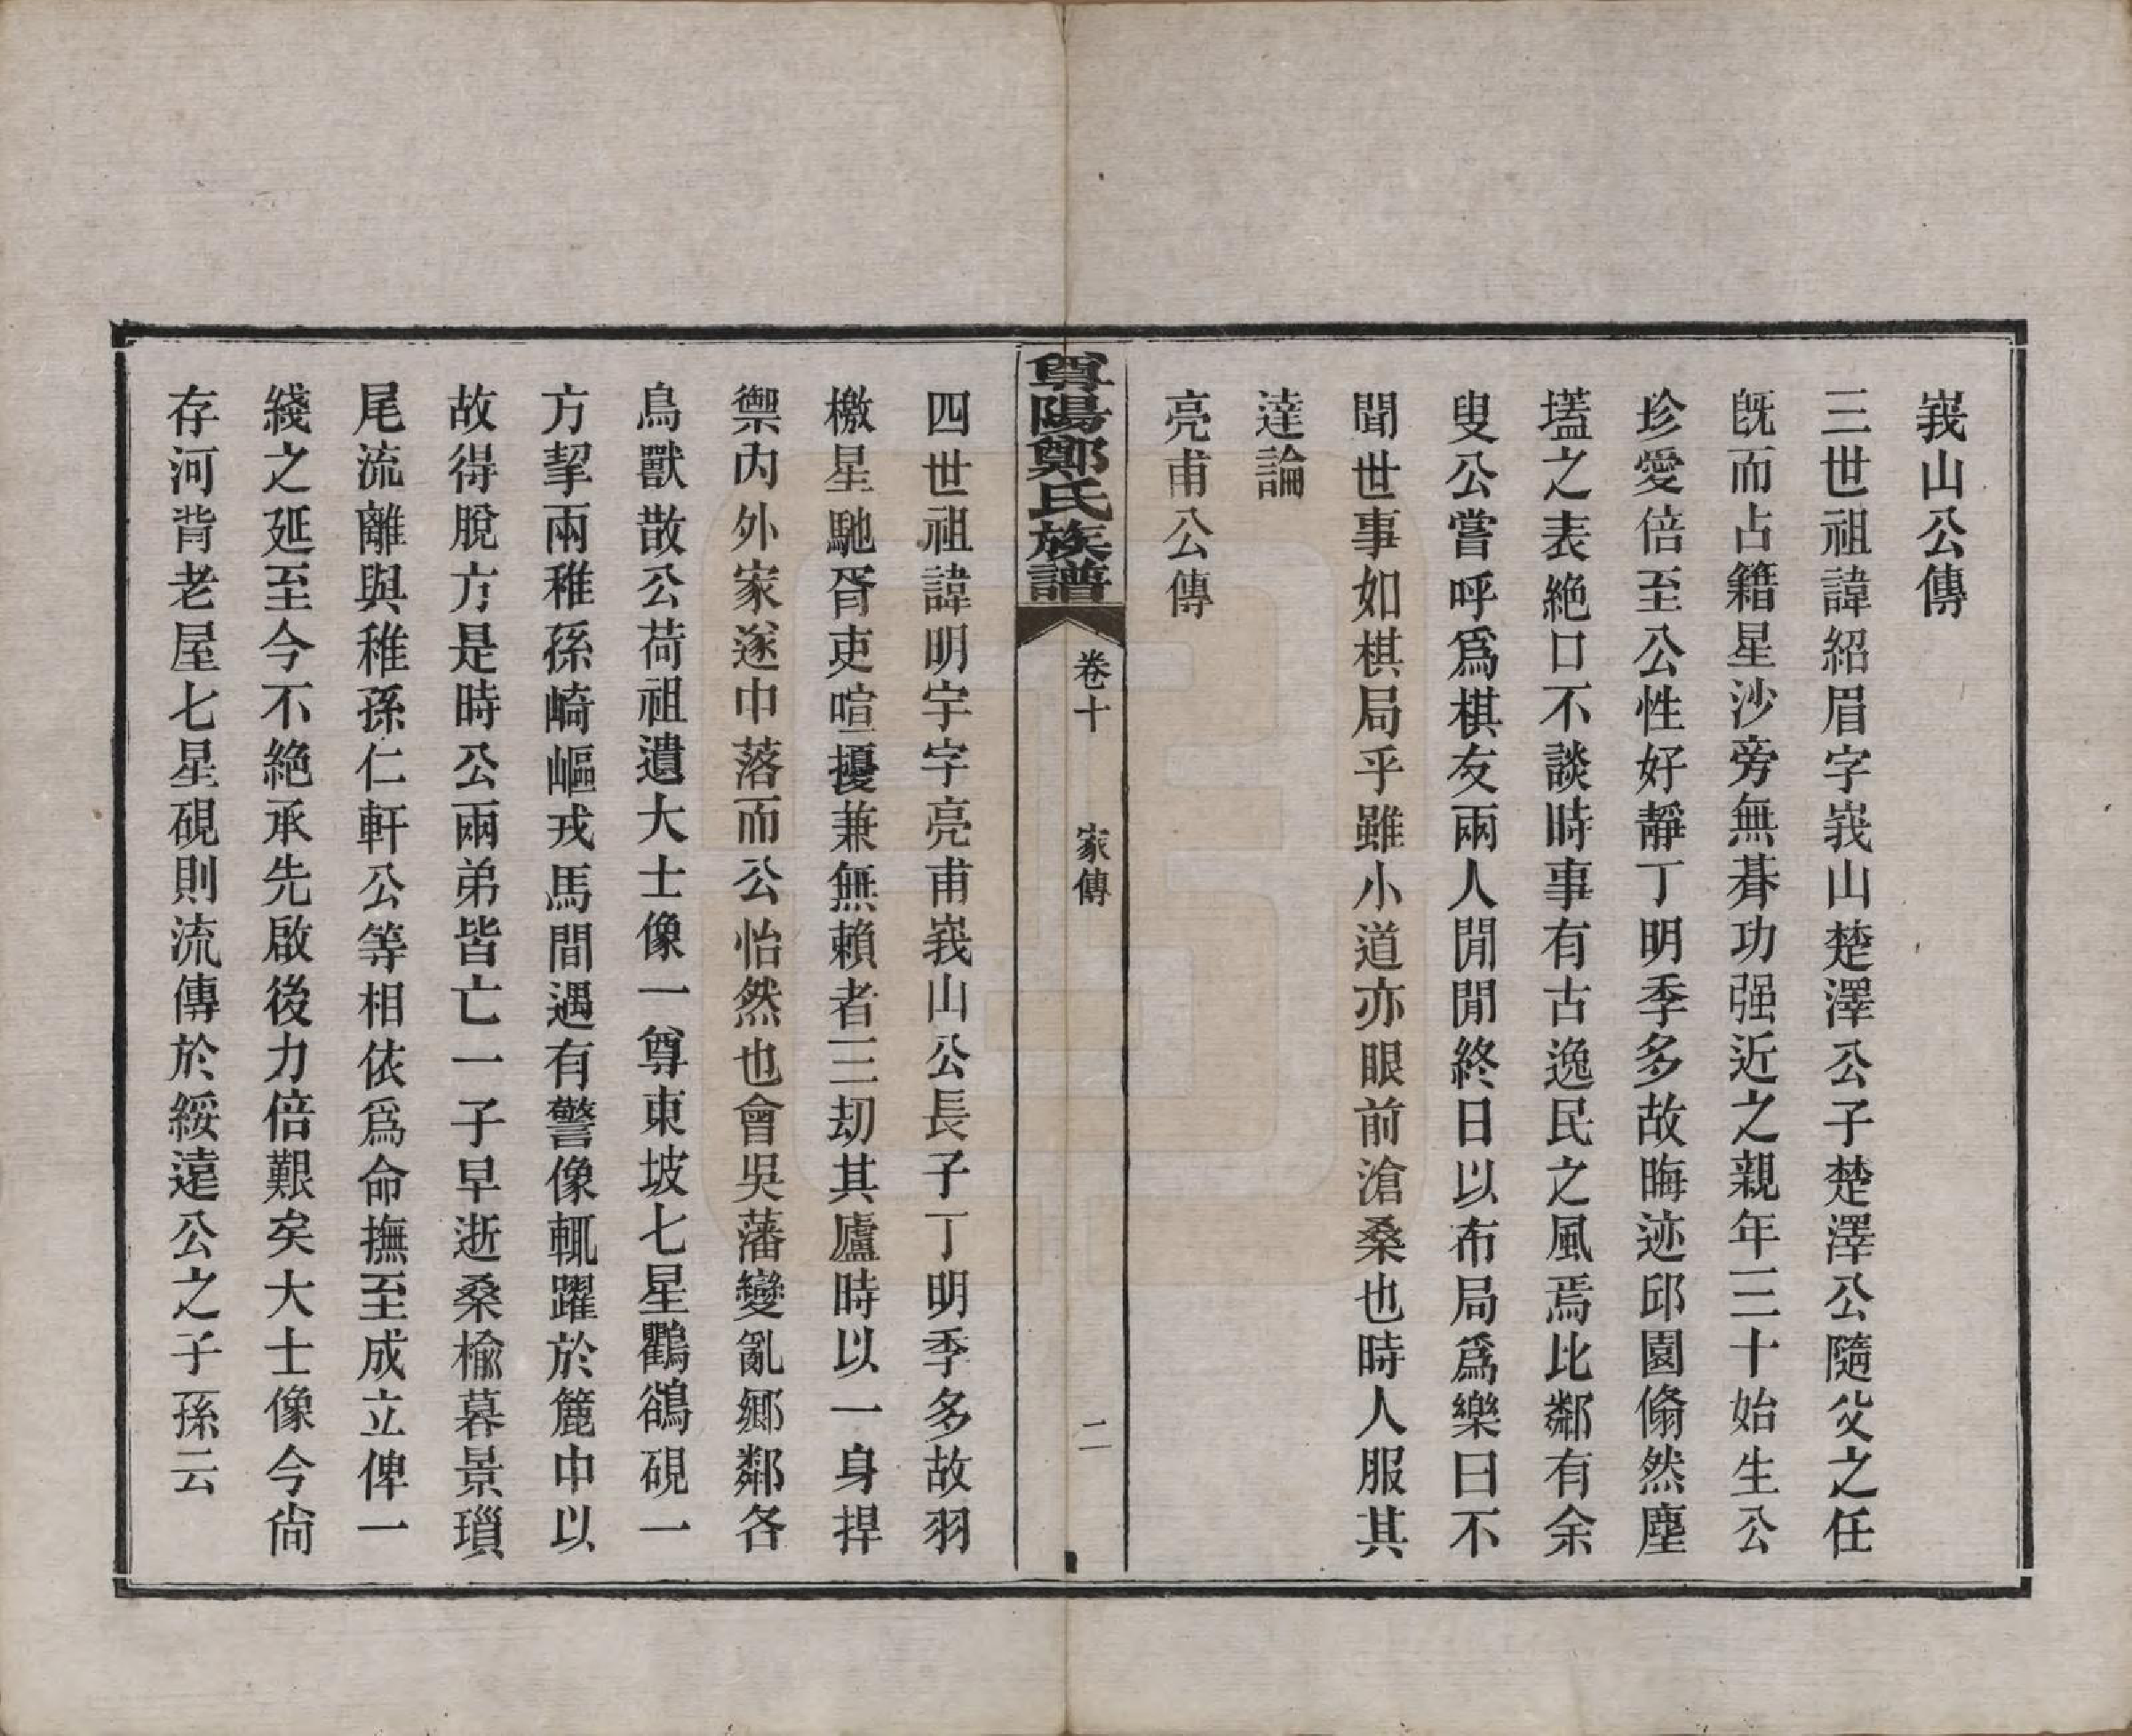 峩山公傳
三世祖諱紹眉字峩山楚澤公子楚澤公隨父之任
旣而占籍星沙旁無朞功强近之親年三十始生公
珍愛倍至公性好靜丁明季多故晦迹邱園翛然塵
壒之表絕口不談時事有古逸民之風焉比鄰有余
叟公嘗呼爲棋友兩人閒閒終日以布局爲樂曰不
聞世事如棋局乎雖小道亦眼前滄桑也時人服其
達論
亮甫公傳
尊陽鄭氏族譜
卷十
家傳
二
四世祖諱明宇字亮甫峩山公長子丁明季多故羽
檄星馳胥吏喧擾兼無賴者三刧其廬時以一身捍
禦內外家遂中落而公怡然也會吳藩變亂鄉鄰各
鳥獸散公荷祖遺大士像一尊東坡七星鸜鵒硯一
方挈兩稚孫崎嶇戎馬間遇有警像輒躍於簏中以
故得脫方是時公兩弟皆亡一子早逝桑榆暮景瑣
尾流離與稚孫仁軒公等相依爲命撫至成立俾一
綫之延至今不絕承先啟後力倍艱矣大士像今尙
存河背老屋七星硯則流傳於綏遠公之子孫云